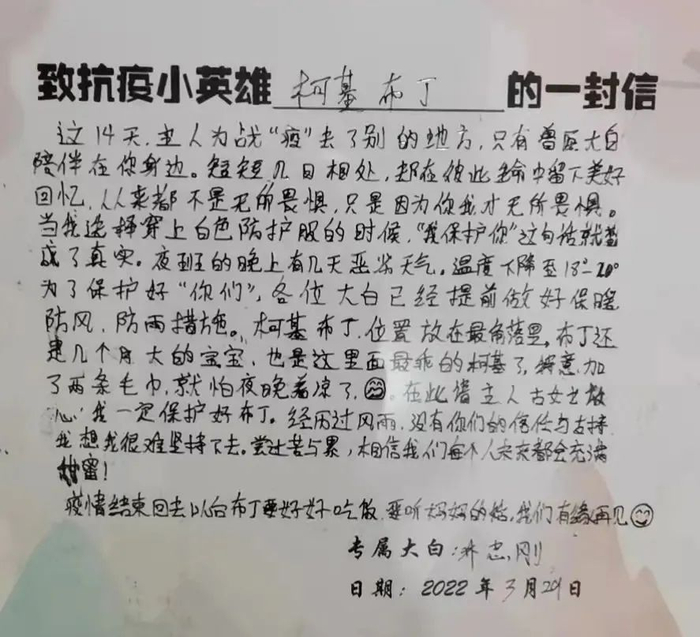 致抗疫小英雄 柯基布丁 的一封信
这14天,主人为战“疫”去了别的地方,只有兽医大白
陪伴在你身边。短短几日相处,却在彼此生命中留下美好
回忆,人从来都不是无所畏惧,只是因为你我才无所畏惧。
当我选择穿上白色防护服的时候,“我保护你”这句话就变
成了真实。夜班的晚上有几天恶劣天气。温度下降至18°-20°
为了保护好“你们”,各位大白已经提前做好保暖
防风,防雨措施。柯基布丁,位置放在最角落里。布丁还
是几个月大的宝宝,也是这里面最乖的柯基了,特意加
了两条毛巾,就怕夜晚着凉了,😊。在此请主人古女士放
心,我一定保护好布丁。经历过风雨,没有你们的信任与支持
我想我很难坚持下去。尝过苦与累,相信我们每个人天天都会充满
甜蜜!
疫情结束回去以后布丁要好好吃饭,要听妈妈的话,我们有缘再见😊
专属大白:忠刚
日期:2022年3月29日